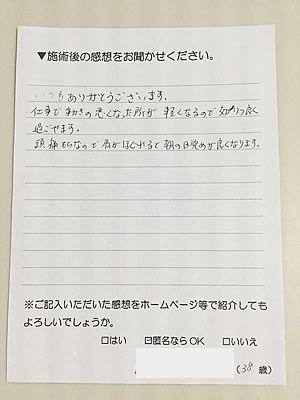 ▼施術後の感想をお聞かせください。
いつもありがとうございます。
仕事で動きの悪くなった所が 軽くなるので 気持ち良く
過ごせます。
頭痛もちなので 肩がほぐれると 朝の目覚めが良くなります。
※ご記入いただいた感想をホームページ等で紹介しても
よろしいでしょうか。
□はい ☑匿名ならOK □いいえ
(38 歳)